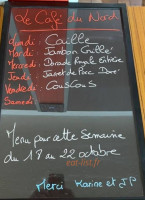 Le Café du Nord
Lundi : Caille
Mardi : Jambon Grillé
Mercredi : Dorade Royale Entière
Jeudi : Jarret de Porc Doré
Vendredi : Couscous
Samedi :
Menu par cette Semaine
du 18 au 22 octobre
Merci Karine et JP